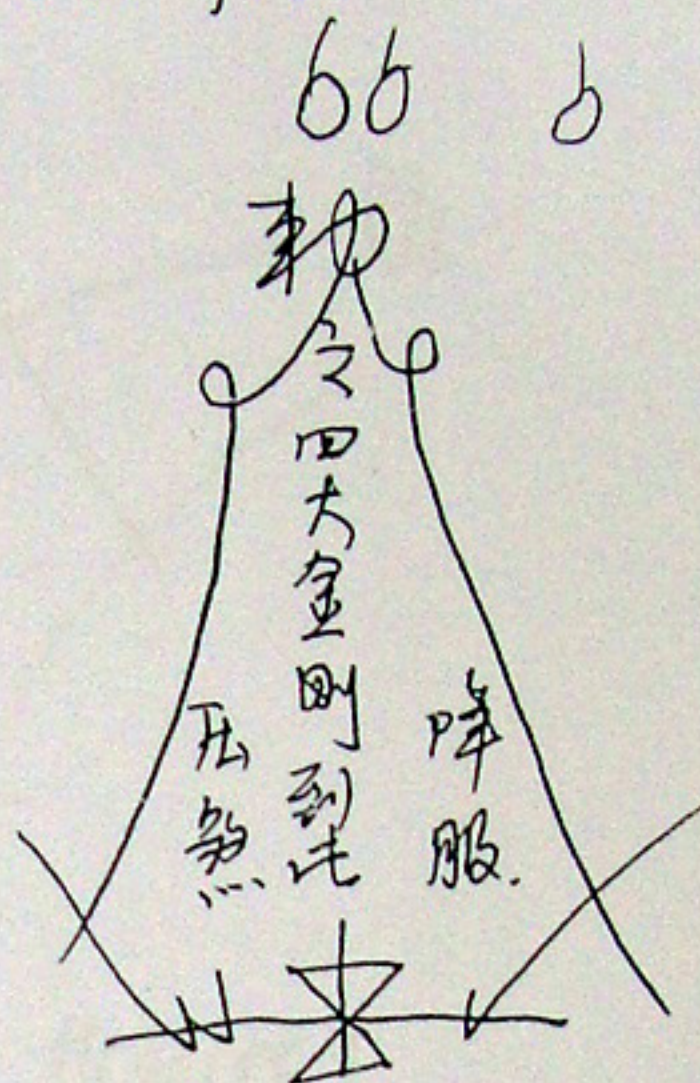 66 6
勅令四大金刚到此
降服
压煞